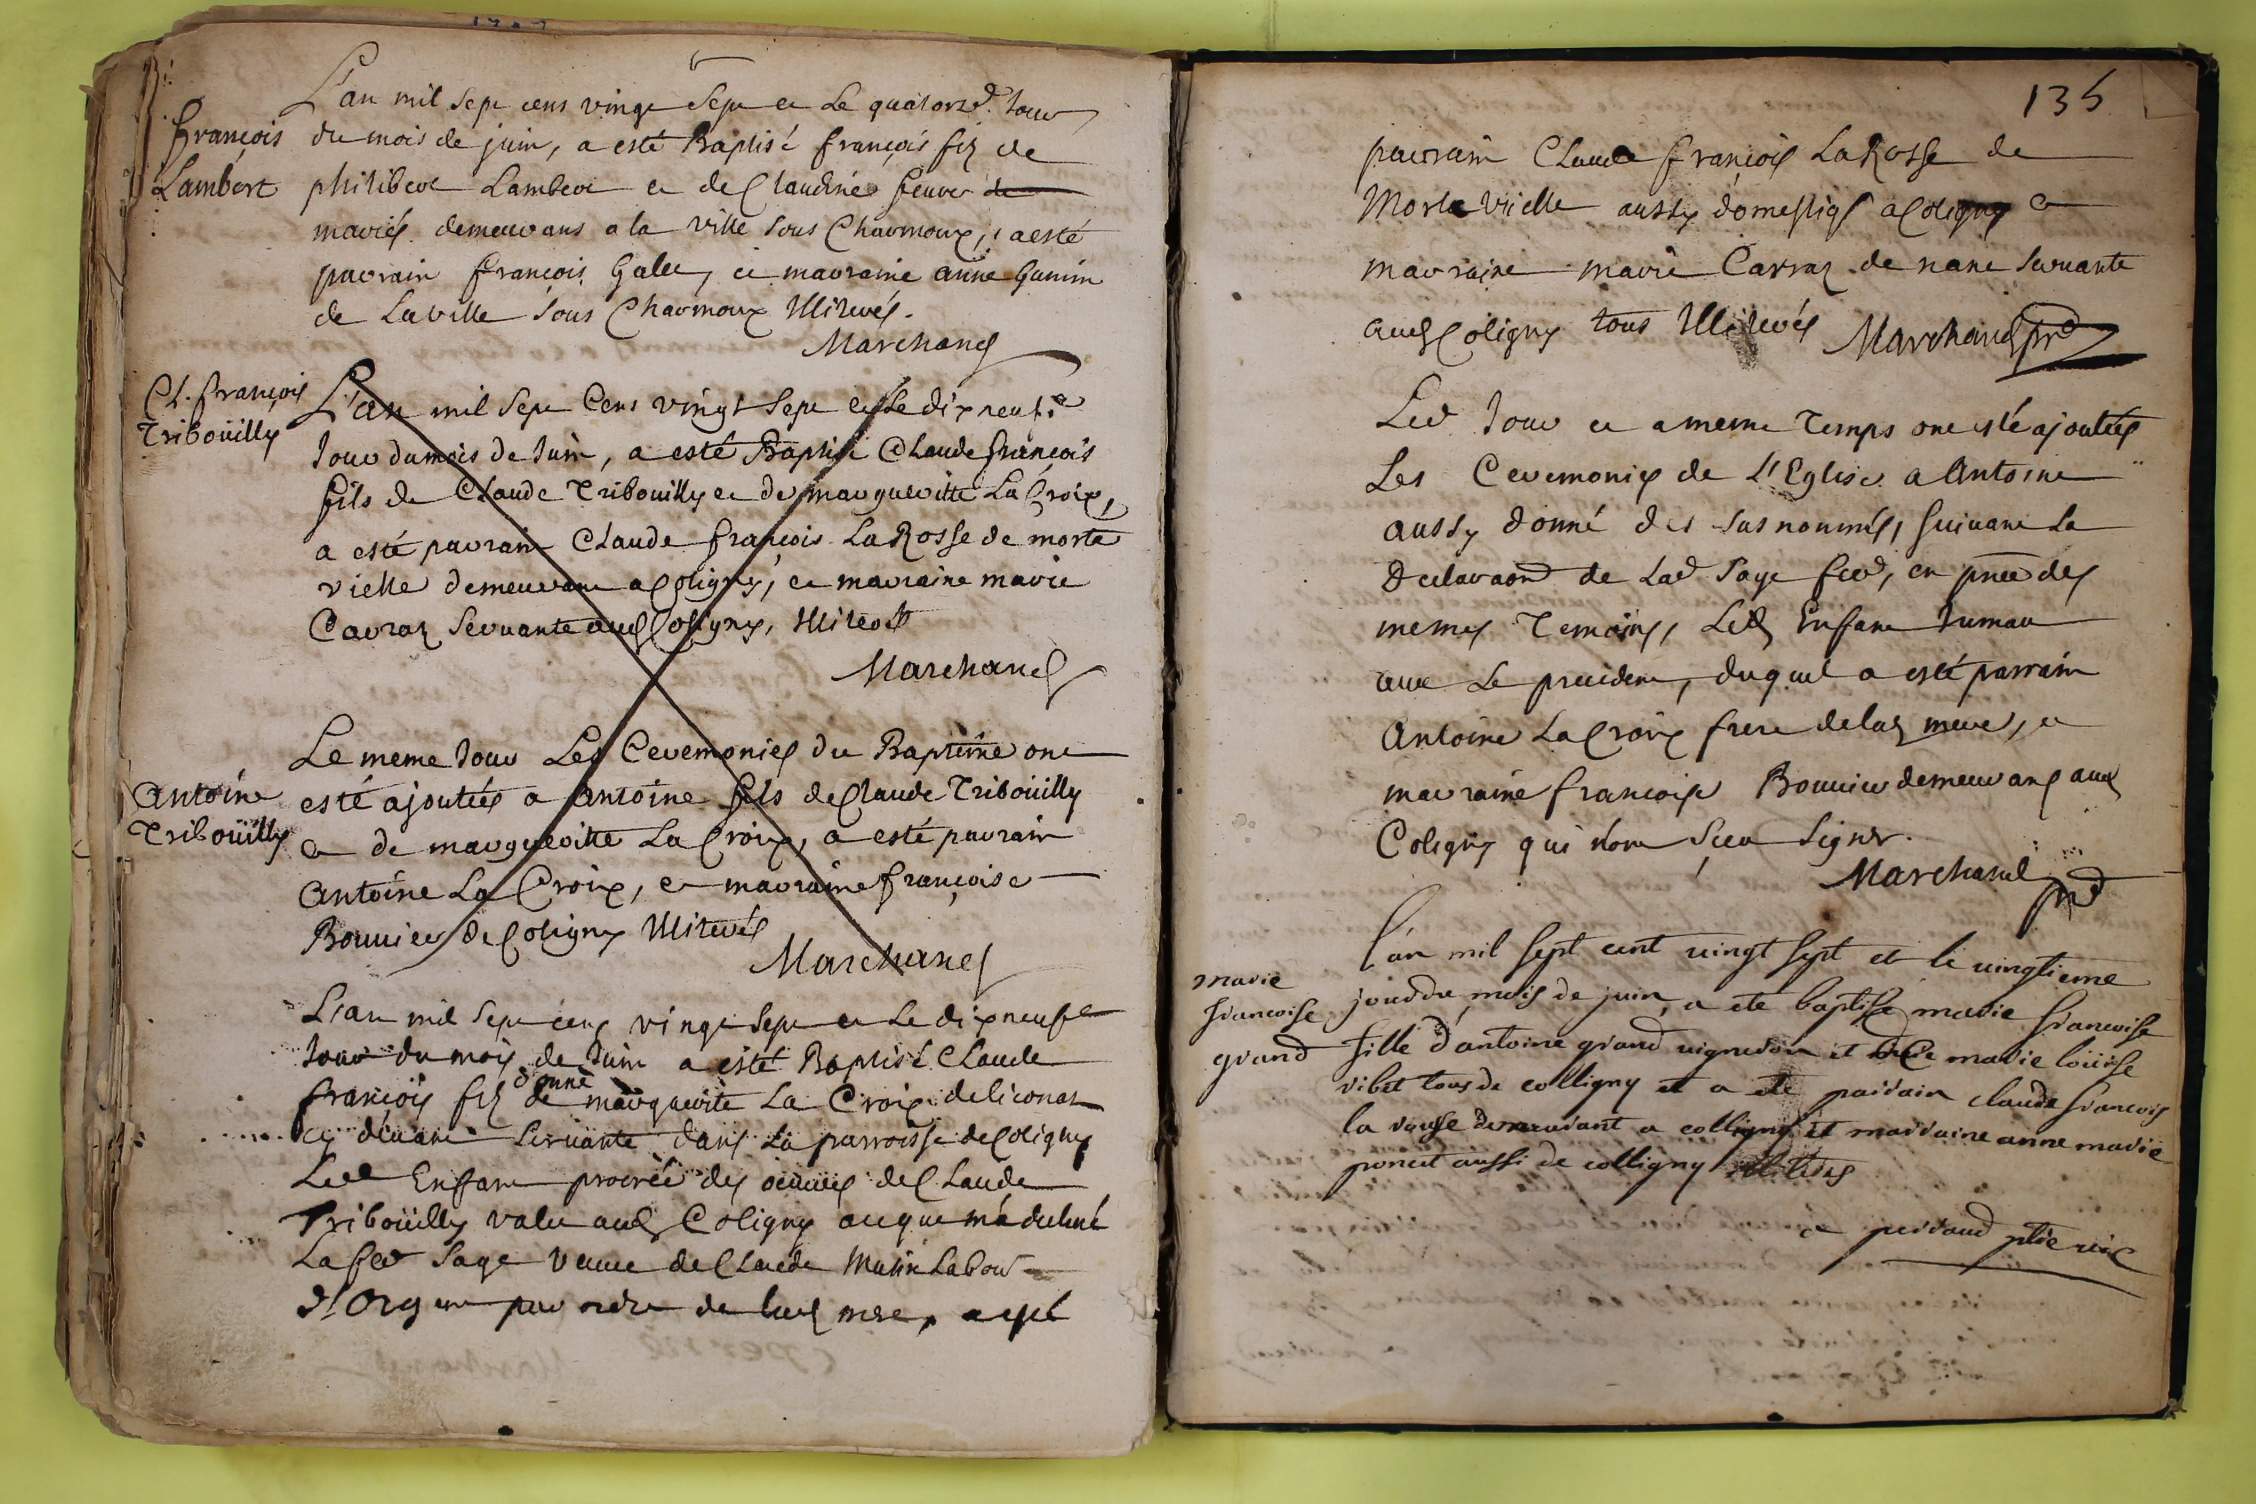 L'an mil sept cens vingt sept et Le quatorze Jour
François
Lambert
du mois de juin, a esté Baptisé françois filz de
philibert Lambert et de Claudine feuvre
mariés demeurans a la ville sous Charmoux, a esté
parrain François Galer, et marraine anne Gamin
de Laville sous Charmoux Illiterés.
Marchand
Cl. françois
Tribouilly
L'an mil sept Cens vingt sept et Le dix neufe
Jour du mois de Juin, a esté Baptisé Claude françois
fils de Claude Tribouilly et de margueritte La Croix,
a esté parrain Claude françois La Rosse de morte
vielle demeurant a Coligny, et marraine marie
Carraz servante aud Coligny, Illiterés
Marchand
Le meme Jour Les Ceremonies du Baptême ont
Antoine
Tribouilly
esté ajoutées a Antoine fils de Claude Tribouilly
et de margueritte La Croix, a esté parrain
Antoine La Croix, et marraine françoise
Bouvier de Coligny Illiterés
Marchand
L'an mil sept cens vingt sept et Le dix neufe
Jour du mois de Juin a esté Baptisé Claude
françois filz donné de marguerite La Croix de liconas
cy devant servante dans La parroisse de Coligny
Led Enfant procréé des oeuures de Claude
Tribouilly valet aud Coligny
La sage veuve de Claude
par ordre de lad mere, a esté
135
parrain Claude françois La Rosse de
Morte Vielle aussy domestiq a Coligny et
marraine marie Carraz de nanc servante
aud Coligny tous Illiterés Marchand
Led Jour et a meme Temps ont esté ajoutées
Les Ceremonies de L'Eglise a Antoine
aussy donné des susnommés, suivant La
de Lad sage, en pnce des
memes Temoins, Led Enfant Jumau
avec Le precedent, duquel a esté parrain
Antoine La Croix frere de lad mere, et
marraine francoise Bouvier demeurans aud
Coligny qui n'ont sceu signer.
Marchand
L'an mil sept cent vingt sept et le vingtieme
marie
francoise
grand
jour du mois de juin, a ete baptisse marie francoise
fille d'antoine grand vigneron et de marie loüise
vibet tous de colligny et a ete parrain claude francois
la rousse demeurant a colligny et marraine anne marie
poncet aussi de colligny illiteres